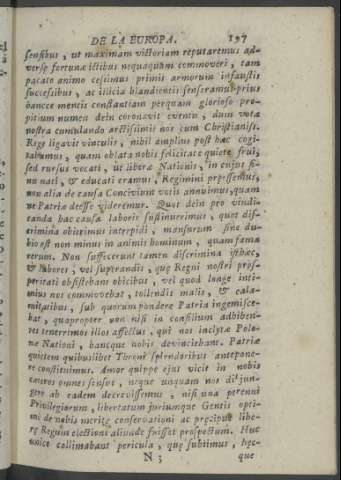 DE LA EUROPA. 197
sensibus, ut maximam victoriam reputaremus ad-
versę fortunæ ictibus nequaquam commoveri, tam
pacato animo cessimus primis armorum infaustis
successibus, ac illicia blandientis senseramus prius
hancce mentis constantiam perquam glorioso pro-
pitium numen dein coronavit eventu, dum vota
nostra cumulando arctissimis nos cum Christianiss.
Rege ligavit vinculis, nihil amplius post hæc cogi-
tabamus, quam oblata nobis felicitate quiete frui,
sed rursus vocati, ut liberæ Nationis, in cujus si-
nu nati, & educati eramus, Regimini præessemus,
non alia de causa Concivium votis annuimus, quam
ne Patriæ deesse videremur. Quot dein pro vindi-
canda hac causa labores sustinuerimus, quot dis-
crimina obivimus intrepidi, mansurum sine du-
bio est non minus in animis hominum, quam fama
rerum. Non suffecerunt tamen discrimina isthæc,
& labores, vel superandis, quę Regni nostri pros-
peritati obsistebant obicibus, vel quod longe inti-
mius nos commovebat, tollendis malis, & cala-
mitatibus, sub quorum pondere Patria ingemisce-
bat, quapropter non nisi in consilium adhiben-
tes tenerrimos illos affectus, qui nos inclytæ Polo-
næ Nationi, hancque nobis devinciebant. Patriæ
quietem quibuslibet Throni splendoribus antepone-
re constituimus. Amor quippe ejus vicit in nobis
cæteros omnes sensus, neque unquam nos disjun-
gere ab eadem decrevissemus, nisi una perenni
Privilegiorum, libertatum juriumque Gentis opti-
mæ de nobis meritę conservationi ac præcipuè libe-
rę Regum electioni aliunde fuisset prospectum. Huc
unice collimabant pericula, quę subimus, hęc-
N 3 que